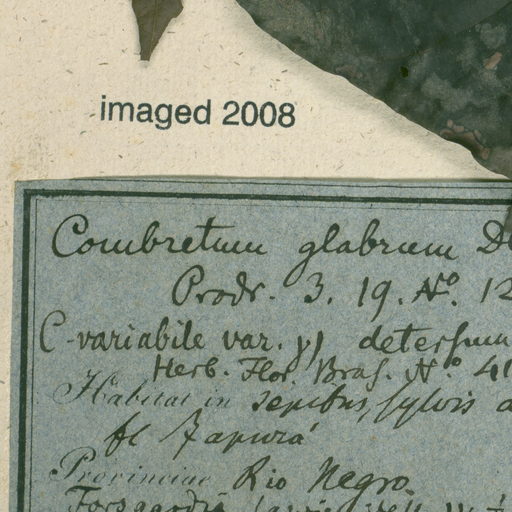 imaged 2008
Combretum glabrum D
Prodr. 3. 19. No. 12
C. variabile var. γ) detersum
Herb. Flor. Bras. No. 4
Habitat in sepibus, sylvis a
fl Japurá
Provinciae Rio Negro.